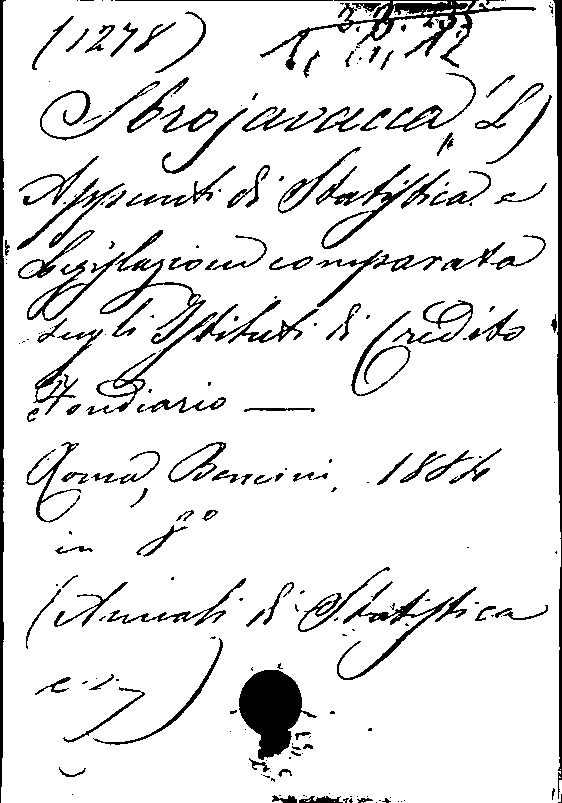 (1278)
Sbrojavacca, L)
Appunti di Statistica e
Legislazione comparata
sugli Istituti di Credito
Fondiario —
Roma, Bencini, 1884
in 8°
(Annali di Statistica